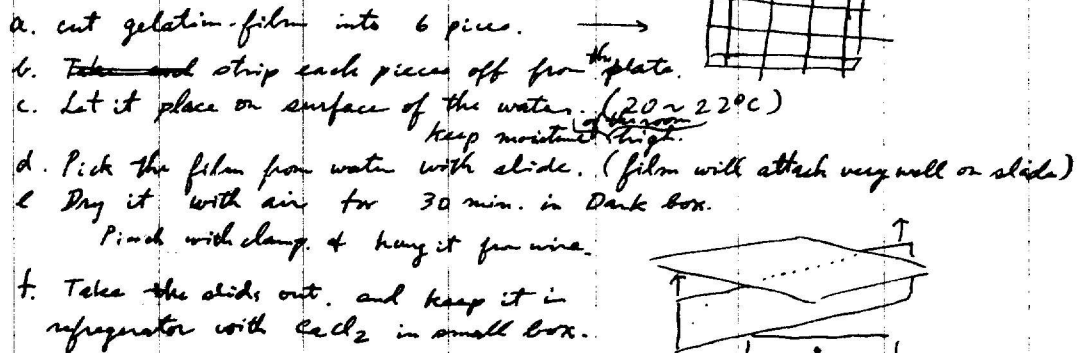 a. cut gelatin-film into 6 pices.
b. Take and strip each pieces off from the plate.
c. Let it place on surface of the water. (20~22°C)
keep moisture of the room high.
d. Pick the film from water with slide. (film will attach very well on slide)
e Dry it with air for 30 min. in Dark box.
Pinch with clamp. & hang it from wire.
f. Take the slide out. and keep it in
refregerator with CaCl2 in small box.